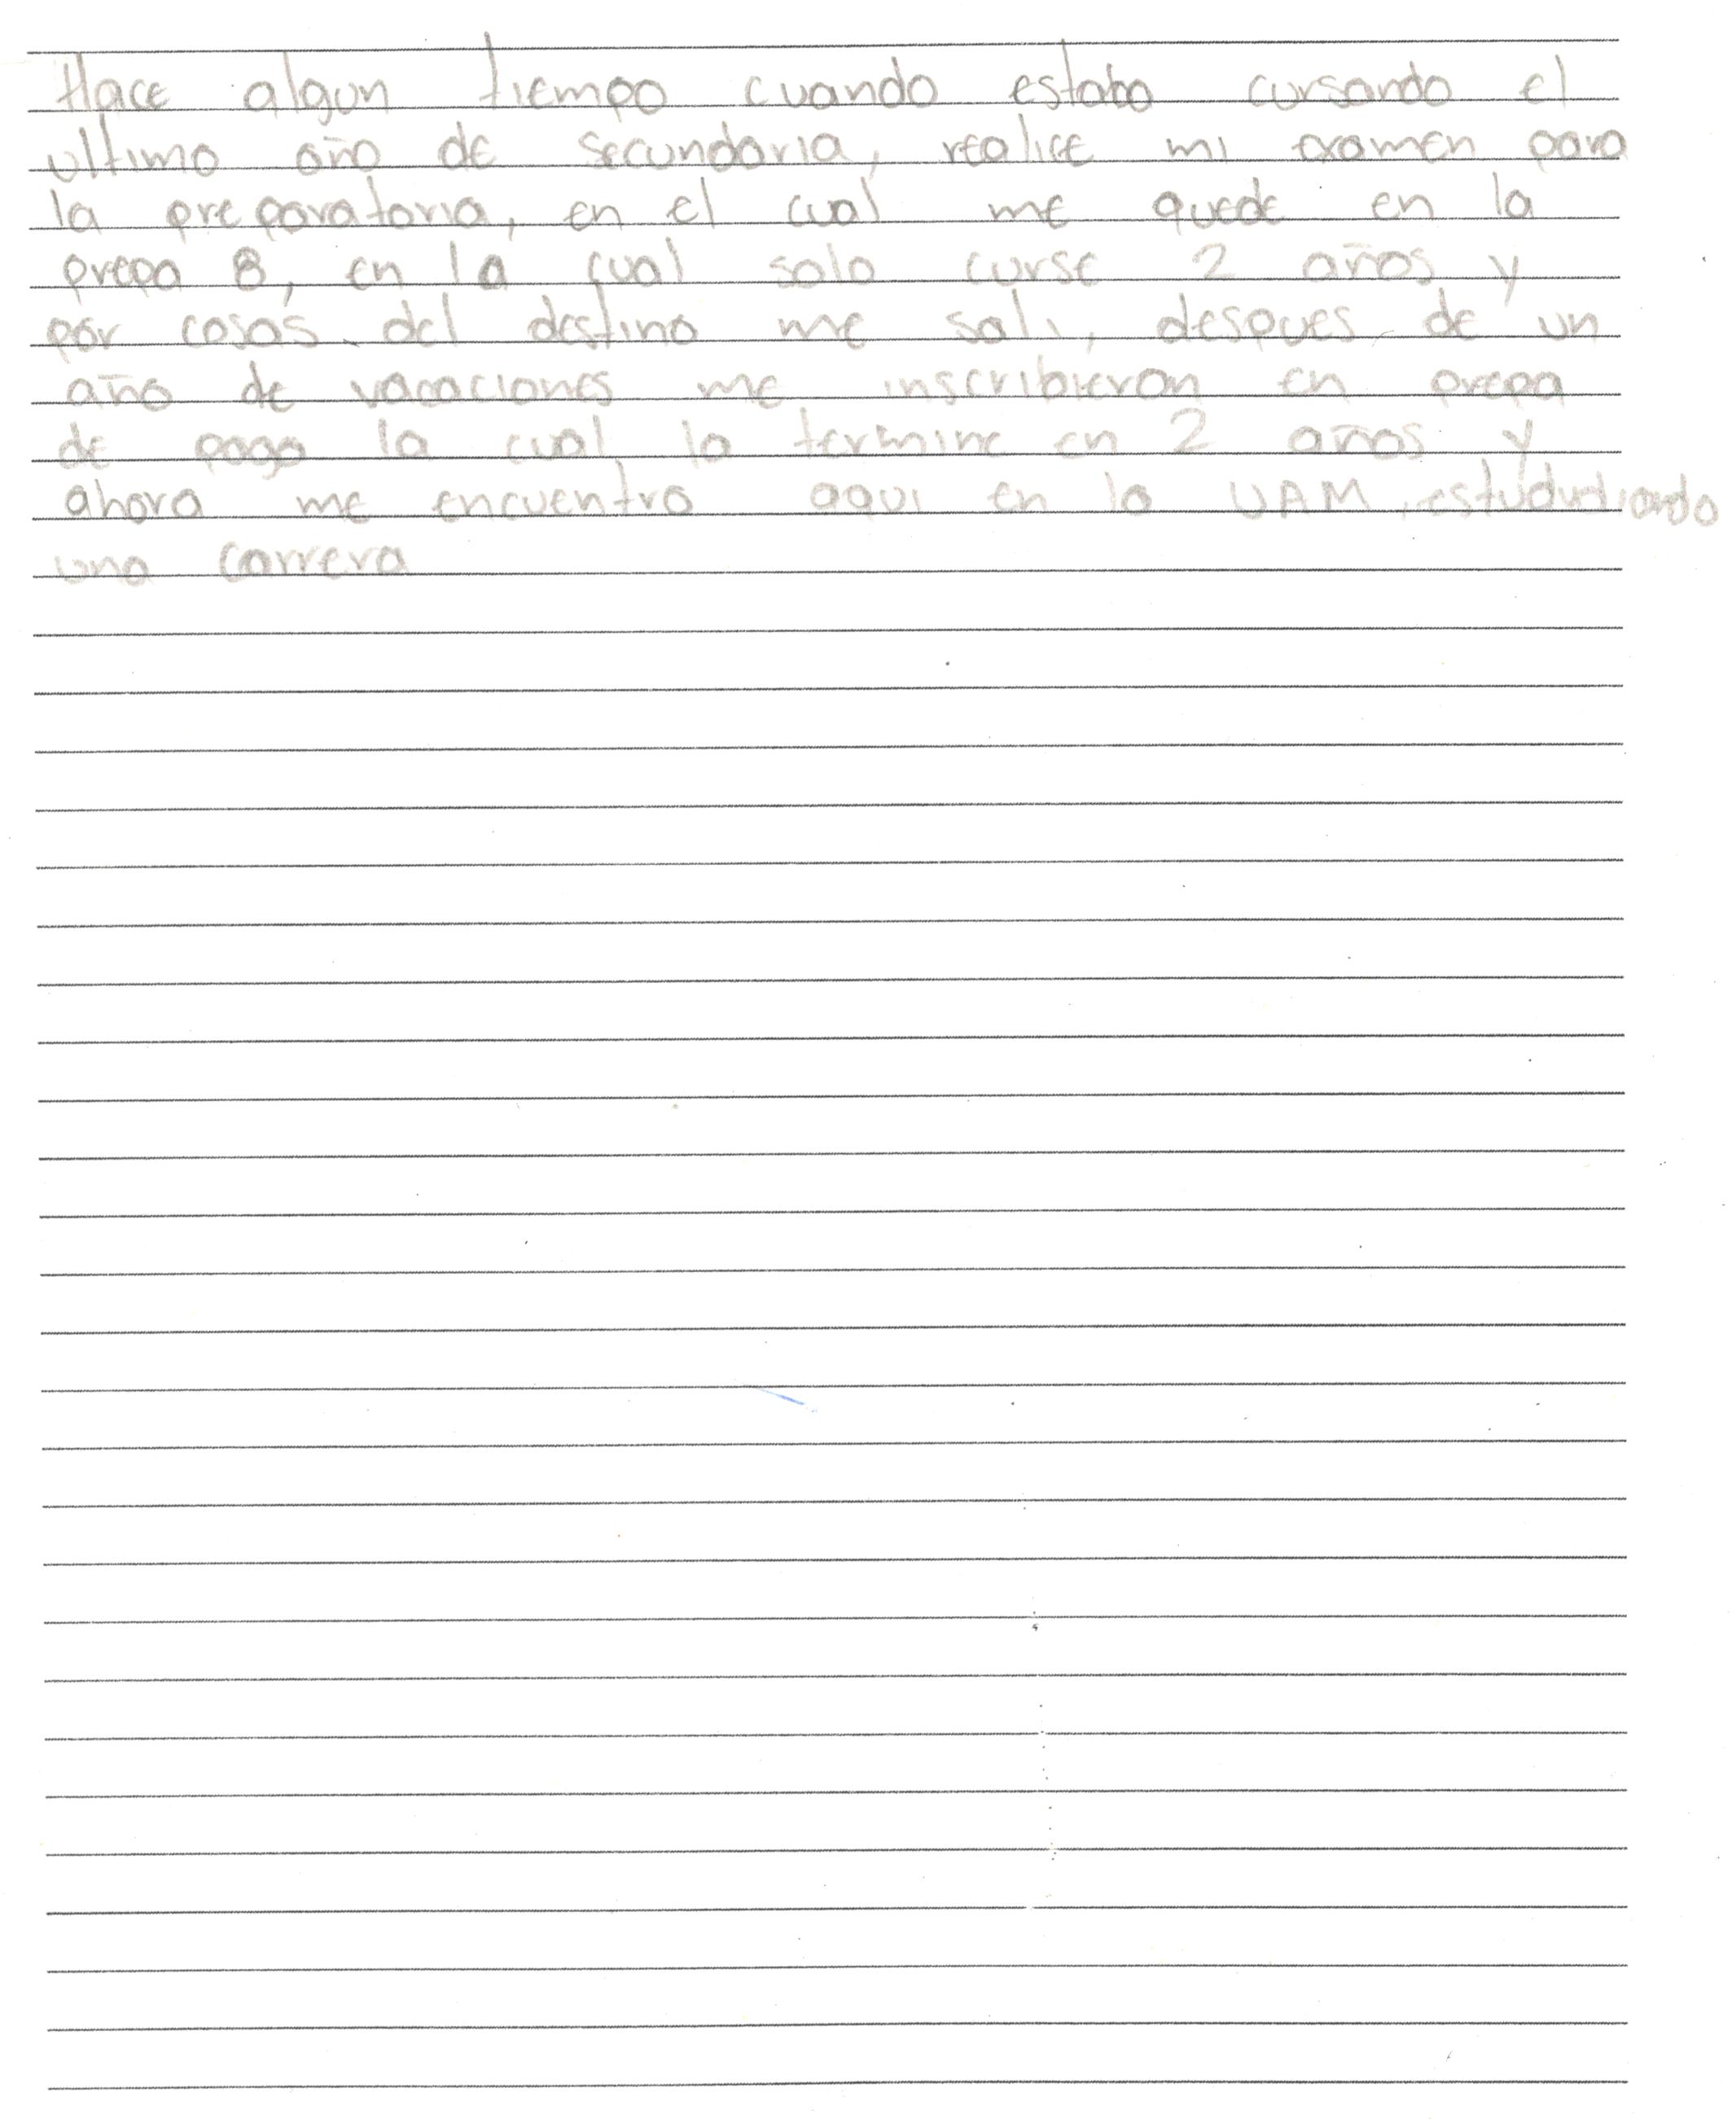 Hace algun tiempo cuando estaba cursando el
ultimo año de secundaria, realice mi examen para
la preparatoria, en el cual me quede en la
prepa 8, en la cual solo curse 2 años y
por cosas del destino me sali, despues de un
año de vacaciones me inscribieron en prepa
de pago la cual la termine en 2 años y
ahora me encuentro aqui en la UAM, estududiando
una carrera